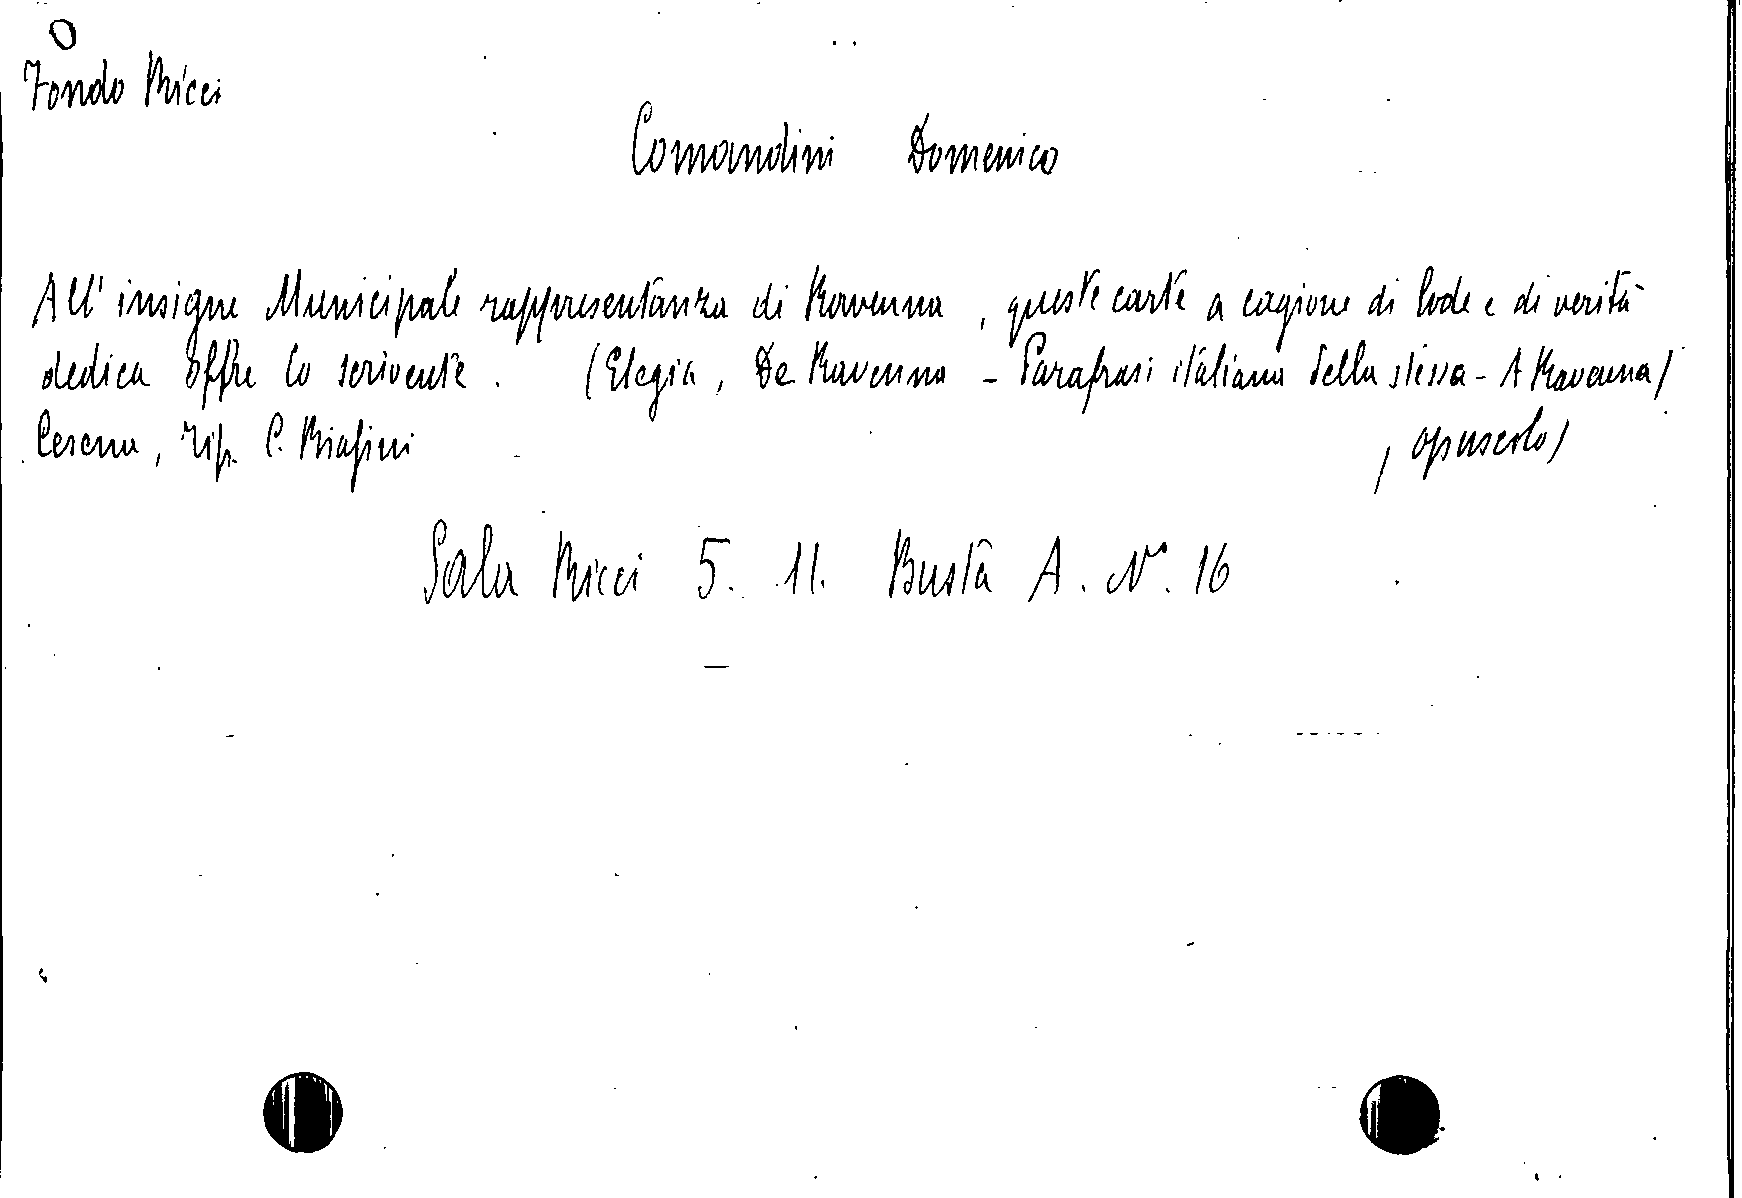 O
Fondo Ricci
Comandini Domenico
All' insigne Municipale rappresentanza di Ravenna, queste carte a cagione di lode e di verità
dedica offre lo scrivente. (Elegia, De Ravenna - Parafrasi italiana della stessa - A Ravenna/
Cesena, Tip. C. Biasini
/ opuscolo)
Sala Ricci 5. 11. Busta A. N°. 16